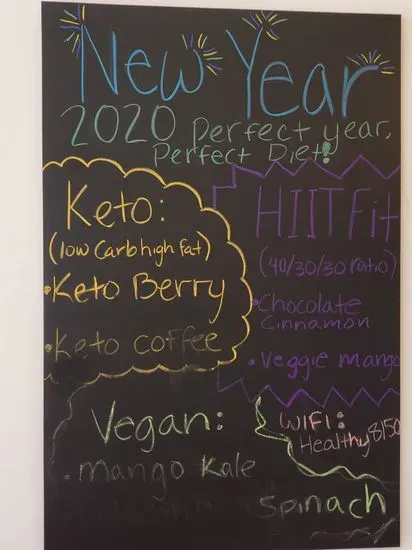 New Year
2020 perfect year,
Perfect Diet!
Keto:
(low Carb high fat)
•Keto Berry
•Keto coffee
HIIT Fit
(40/30/30 ratio)
•Chocolate
Cinnamon
•Veggie mango
Vegan:
•mango Kale
WIFI:
Healthy8150
Spinach